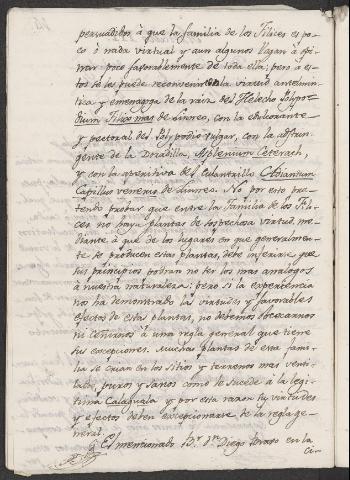 persuadidos à que la familia de los Filices es po-
co ò nada virtual y aun algunos llegan à opi-
nar poco favorablemente de toda ella; pero à es-
tos se les puede reconvenir con la virtud antelmin-
tica y emenagoga de la raiz del Helecho Polypo-
dium Filix mas de Linneo, con la edulcorante
y pectoral del Polypodio vulgar, con la adstrin-
gente de la Doradilla, Asplenium Ceterach,
y con la aperitiva del Culantrillo Adiantum
Capillus veneris de Linneo. No por esto pre-
tendo probar que entre la familia de los Fili-
ces no haya plantas de sospechosa virtud, me-
diante à que de los lugares en que generalmen-
te se producen estas plantas, debe inferirse que
sus principios podran no ser los mas analogos
à nuestra naturaleza; pero si la experiencia
no ha demonstrado las virtudes y favorables
efectos de estas plantas, no debemos obcecarnos
ni ceñirnos à una regla general que tiene
sus excepciones. Muchas plantas de esta fami-
lia se crian en los sitios y terrenos mas venti-
lados, puros y sanos como le sucede à la legi-
tima Calaguala y por esta razon sus virtudes
y efectos deben excepcionarse de la regla ge-
neral.
El mencionado Br. Dn. Diego en la
ci-